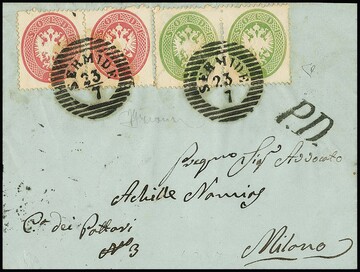 SERMIDE
23
7
SERMIDE
23
7
P.D.
Pregno Sigr Avvocato
Achille Namias
Cta dei Pattari
No 3
Milano